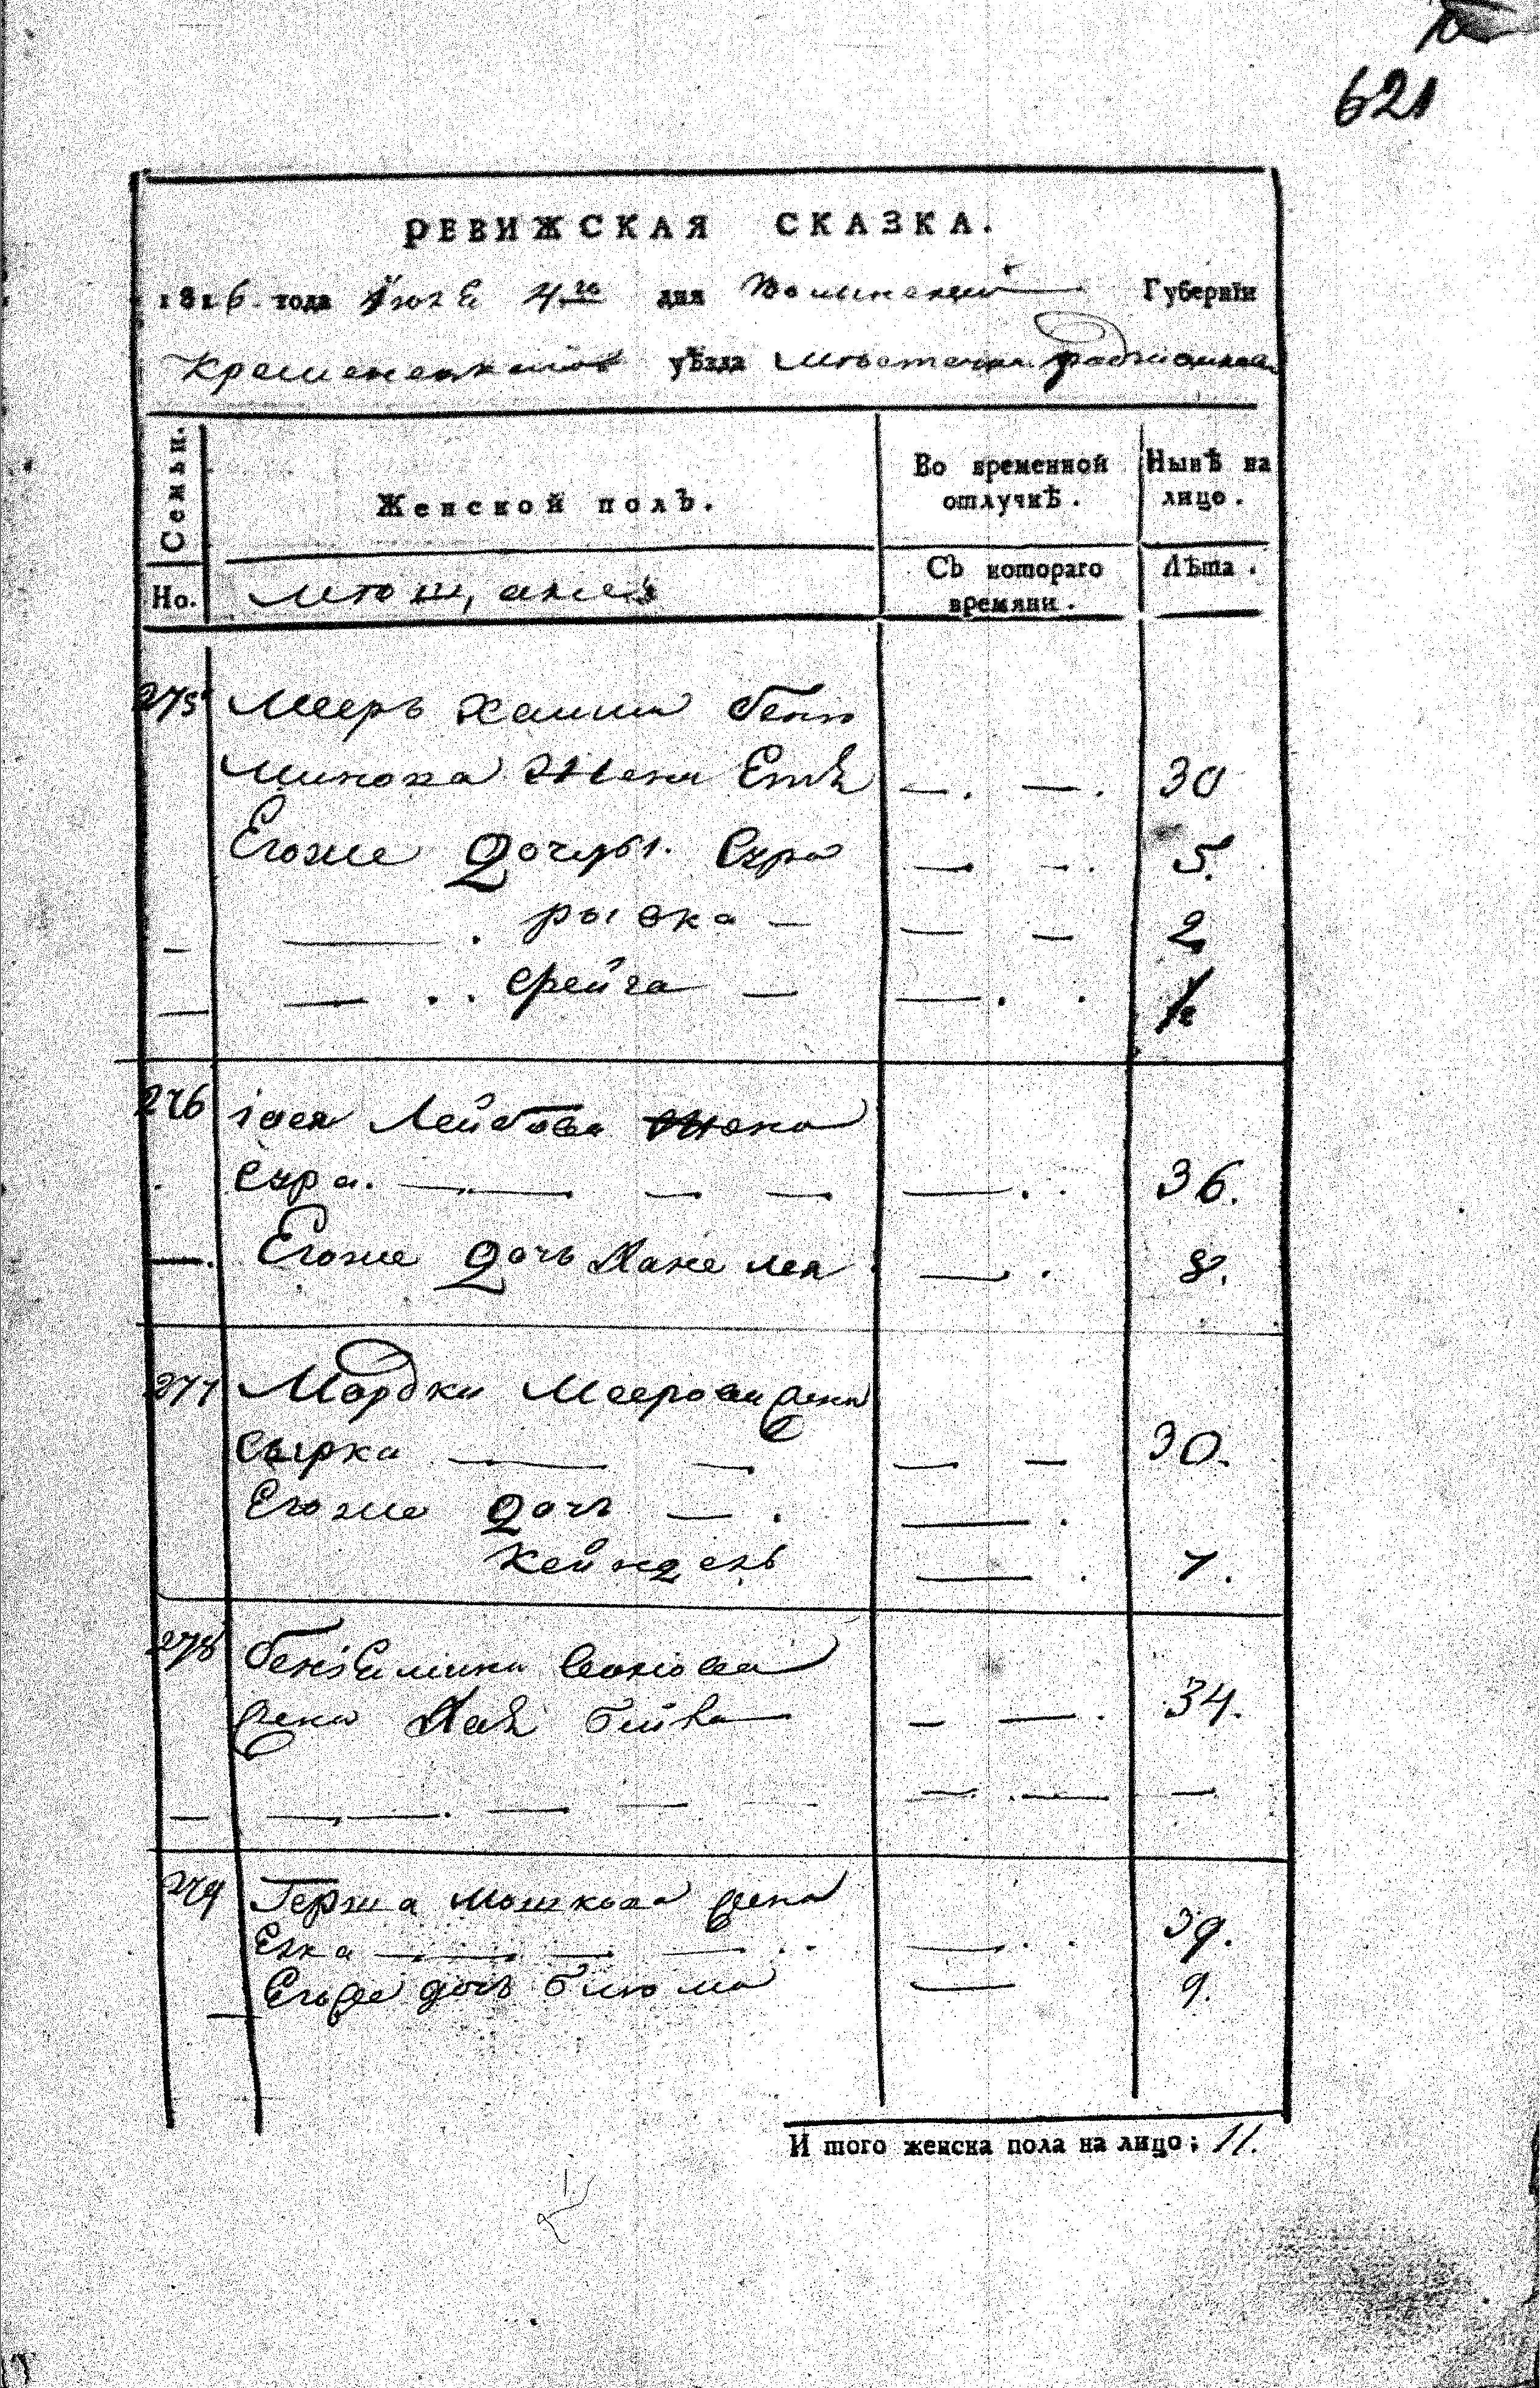 621
РЕВИЖСКАЯ СКАЗКА.
1816 года 4го дня Волынской Губерніи
Кременецкаго уѣзда местечка
Семьи.
Женской полъ.
Во временной отлучкѣ.
Ныне на лицо.
Но.
мѣщане
Съ котораго времяни.
Лѣта.
275 Мееръ Хаима Бень
Миноха жена Етя 30
Егоже Дочеры. Сура 5.
рывка 2
Фрейга
276 Лейбова жена
Сура. 36.
Егоже Дочь Хане лея 8.
277 Мордки Меерови жена
Сырка 30.
Егоже Дочь
Кейндель 7.
278
жена Хая бейва 34.
279 Герша Мошкова жена
Елка 39.
Егоже дочь блюма 9.
И того женска пола на лицо; 11.